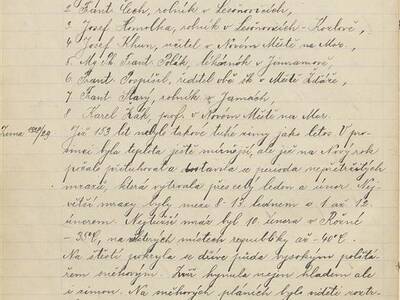 2 Frant. Čech, rolník v Lesoňovicích,
3 Josef Homolka, rolník v Lesoňovicích - Kozlově,
4 Josef Khun, učitel v Novém Městě na Mor.,
5 Mg. Ph. Frant. Polák, lékárník v Jimramově,
6 Frant. Pospíšil, ředitel obč. šk. v Městě Žďáře,
7 Frant. Starý, rolník v Jamách,
8 Karel Žák, prof. v Novém Městě na Mor.
Zima 1928/29. Již 153 let nebylo takové tuhé zimy jako letos. V pro-
sinci byla teplota ještě mírnější, ale již na Nový rok
počalo přituhovat a nastala perioda nepřetržitých
mrazů, která vytrvala přes celý leden a únor. Nej-
větší mrazy byly mezi 8-13. lednem a 1. až 12.
únorem. Největší mráz byl 10. února v Rožné
- 35°C, na některých místech republiky až - 40°C.
Na štěstí pokryla se dříve půda vysokým polštá-
řem sněhovým. Zvěř hynula nejen hladem ale
i zimou. Na sněhových pláních bylo viděti